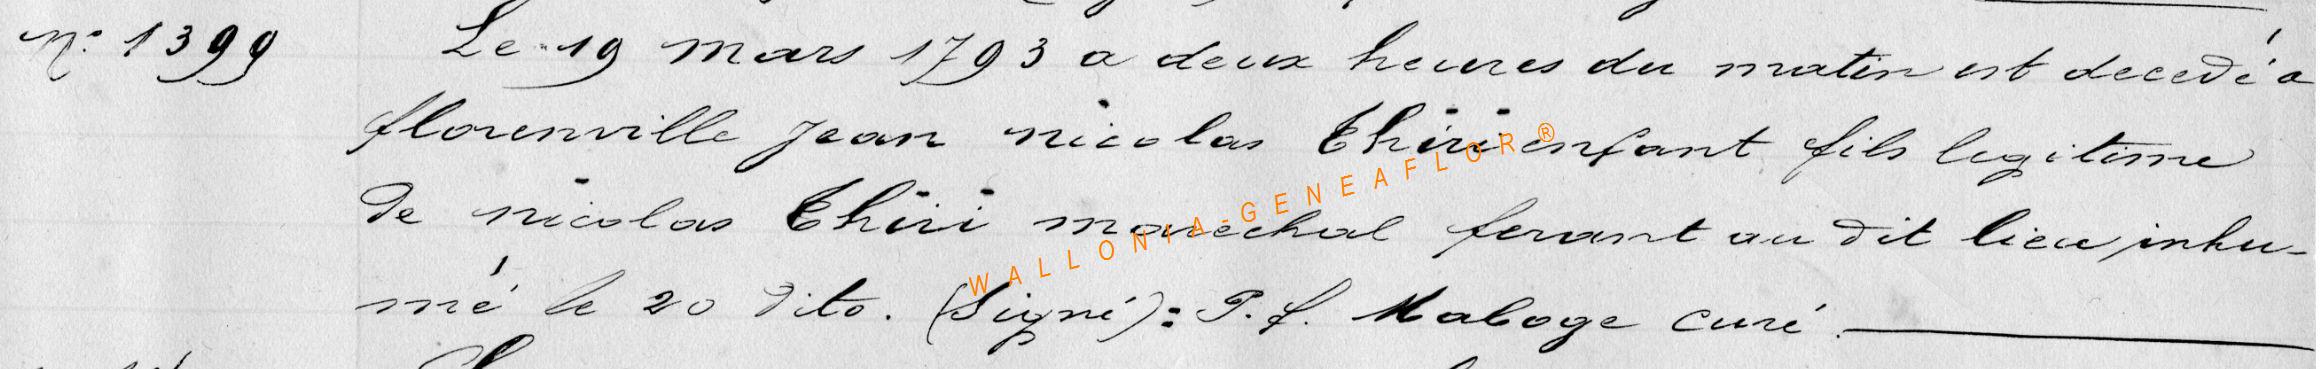 n° 1399 Le 19 mars 1793 a deux heures du matin est decedé a
florenville Jean nicolas Thiri enfant fils legitime
de nicolas Thiri marechal ferant au dit lieu inhu-
mé le 20 dito. (Signé): P. f. Maboge curé.
WALLONIA-GENEAFLOR®